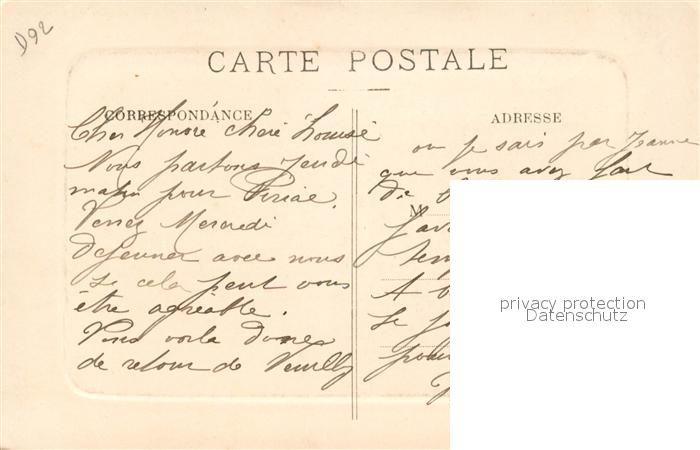 D92
CARTE POSTALE
CORRESPONDANCE
Cher Honoré chère Louise
Nous partons jeudi
matin pour Piriac.
Venez Mercredi
Dejeuner avec nous
se cela peut vous
être agréable.
Vous voila donc
de retour de
ADRESSE
ou je sais par Jeanne
que vous avez fait
De
M
A
Le
pour
privacy protection
Datenschutz